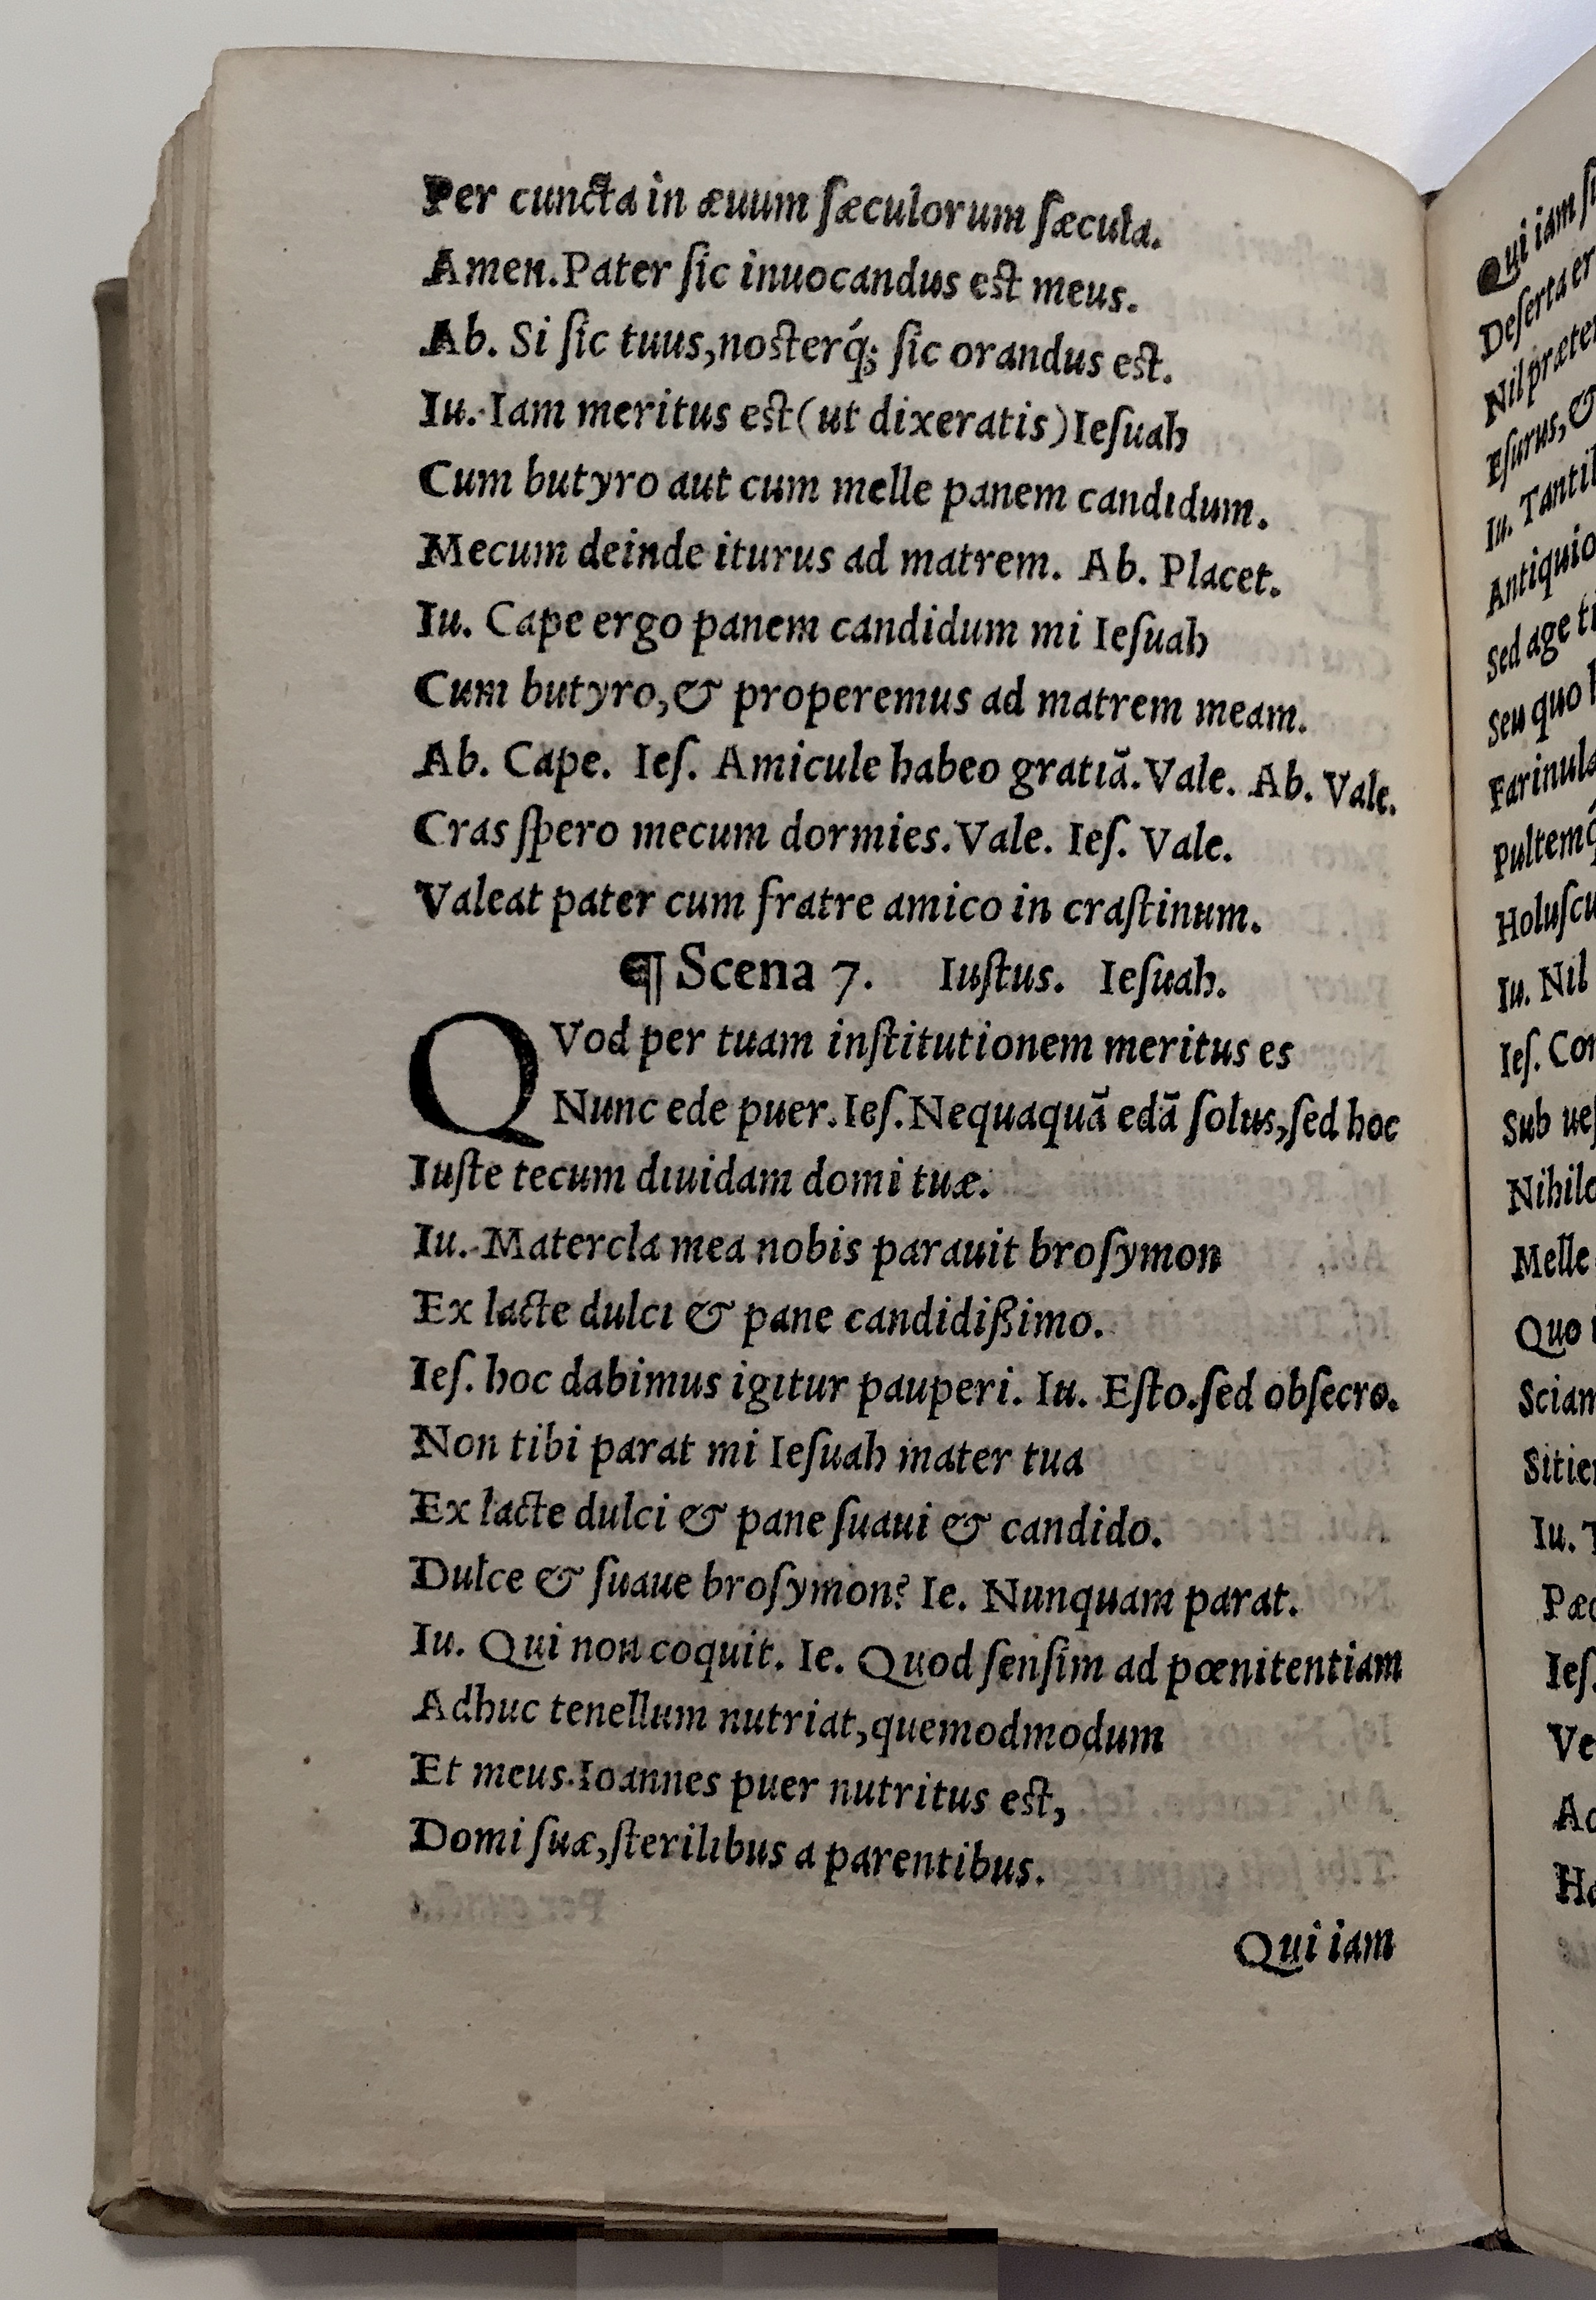 Per cuncta in æuum ſæculorum ſæcula.
Amen. Pater ſic inuocandus est meus.
Ab. Si ſic tuus, nosterq́ꝫ ſic orandus est.
Iu. Iam meritus est (ut dixeratis) Ieſuah
Cum butyro aut cum melle panem candidum.
Mecum deinde iturus ad matrem. Ab. Placet.
Iu. Cape ergo panem candidum mi Ieſuah
Cum butyro, & properemus ad matrem meam.
Ab. Cape. Ieſ. Amicule habeo gratiã. Vale. Ab. Vale.
Cras ſpero mecum dormies. Vale. Ieſ. Vale.
Valeat pater cum fratre amico in craſtinum.
¶ Scena 7. Iuſtus. Ieſuah.
QVod per tuam inſtitutionem meritus es
Nunc ede puer. Ieſ. Nequaquã edã ſolus, ſed hoc
Iuſte tecum diuidam domi tuæ.
Iu. Matercla mea nobis parauit broſymon
Ex lacte dulci & pane candidißimo.
Ieſ. hoc dabimus igitur pauperi. Iu. Eſto. ſed obſecro.
Non tibi parat mi Ieſuah mater tua
Ex lacte dulci & pane ſuaui & candido.
Dulce & ſuaue broſymon? Ie. Nunquam parat.
Iu. Qui non coquit. Ie. Quod ſenſim ad pœnitentiam
Adhuc tenellum nutriat, quemodmodum
Et meus Ioannes puer nutritus est,
Domi ſuæ, ſterilibus a parentibus.
Qui iam
Qui iam
Deſerta
Nil præter
Eſurus, &
Iu.
Antiquio
Sed age
Seu quo
Farinula
Pultemq́
Holuſcu
Iu. Nil
Ieſ.
Sub
Nihil
Melle
Quo
Sciam
Sitie
Iu.
Ieſ.